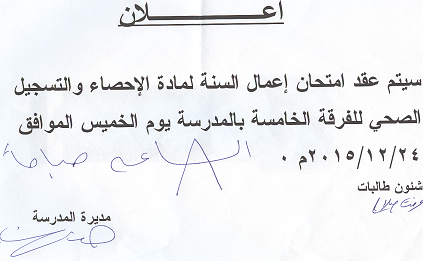 اعـــــلان
سيتم عقد امتحان إعمال السنة لمادة الإحصاء والتسجيل
الصحي للفرقة الخامسة بالمدرسة يوم الخميس الموافق
٢٠١٥/١٢/٢٤م ٠ الساعه ٨ صباحاً
شئون طالبات
مديرة المدرسة